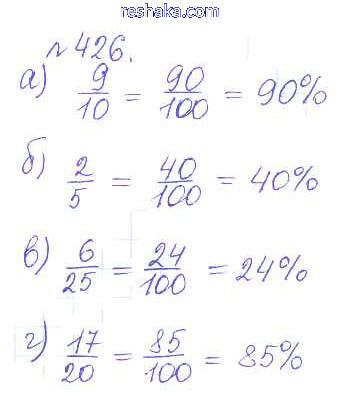 reshaka.com
№426.
а) 9/10 = 90/100 = 90%
б) 2/5 = 40/100 = 40%
в) 6/25 = 24/100 = 24%
г) 17/20 = 85/100 = 85%